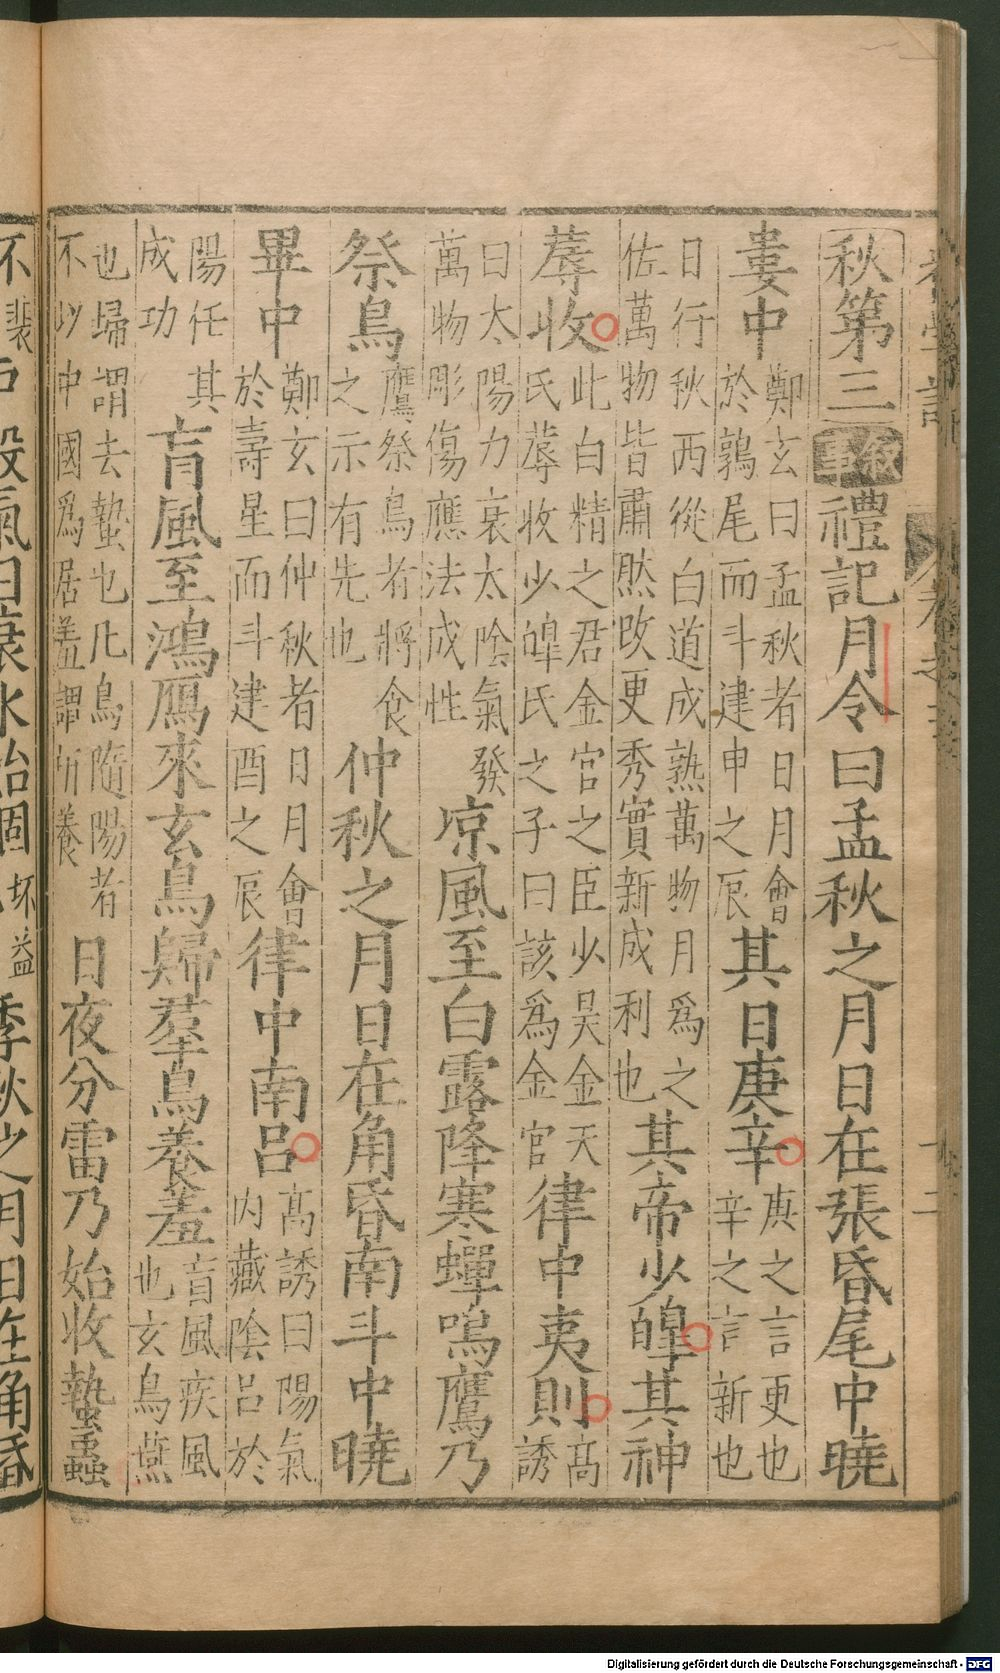 秋第三敘事禮記月令曰孟秋之月日在張昏尾中曉
婁中鄭玄曰孟秋者日月會於鶉尾而斗建申之辰其日庚辛庚之言更也辛之言新也
日行秋西從白道成熟萬物月爲之佐萬物皆肅然改更秀實新成利也其帝少皥其神
蓐收此白精之君金官之臣少昊金天氏蓐收少皥氏之子曰該爲金官律中夷則高誘
曰太陽力衰太陰氣發萬物彫傷應法成性凉風至白露降寒蟬鳴鷹乃
祭鳥鷹祭鳥者將食之示有先也仲秋之月日在角昏南斗中曉
畢中鄭玄曰仲秋者日月會於壽星而斗建酉之辰律中南呂高誘曰陽氣内藏陰呂於
陽任其成功盲風至鴻鴈來玄鳥歸羣鳥養羞盲風疾風也玄鳥燕
也歸謂去蟄也凡鳥隨陽者不以中國爲居羞謂所養日夜分雷乃始收蟄蟲
殺氣日衰水始涸坏益季秋之月日在角昏